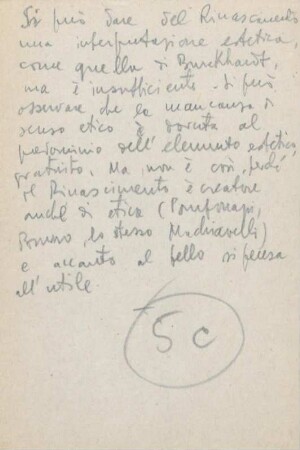 Si può dare del Rinascimento
una interpretazione estetica,
come quella di Burckhardt,
ma è insufficiente. Si può
osservare che la mancanza di
senso etico è dovuta al
predominio dell'elemento estetico
gratuito. Ma non è così, perché
il Rinascimento è creatore
anche di etica (Pomponazzi,
Bruno, lo stesso Machiavelli)
e accanto al bello si pensa
all'utile.
5c